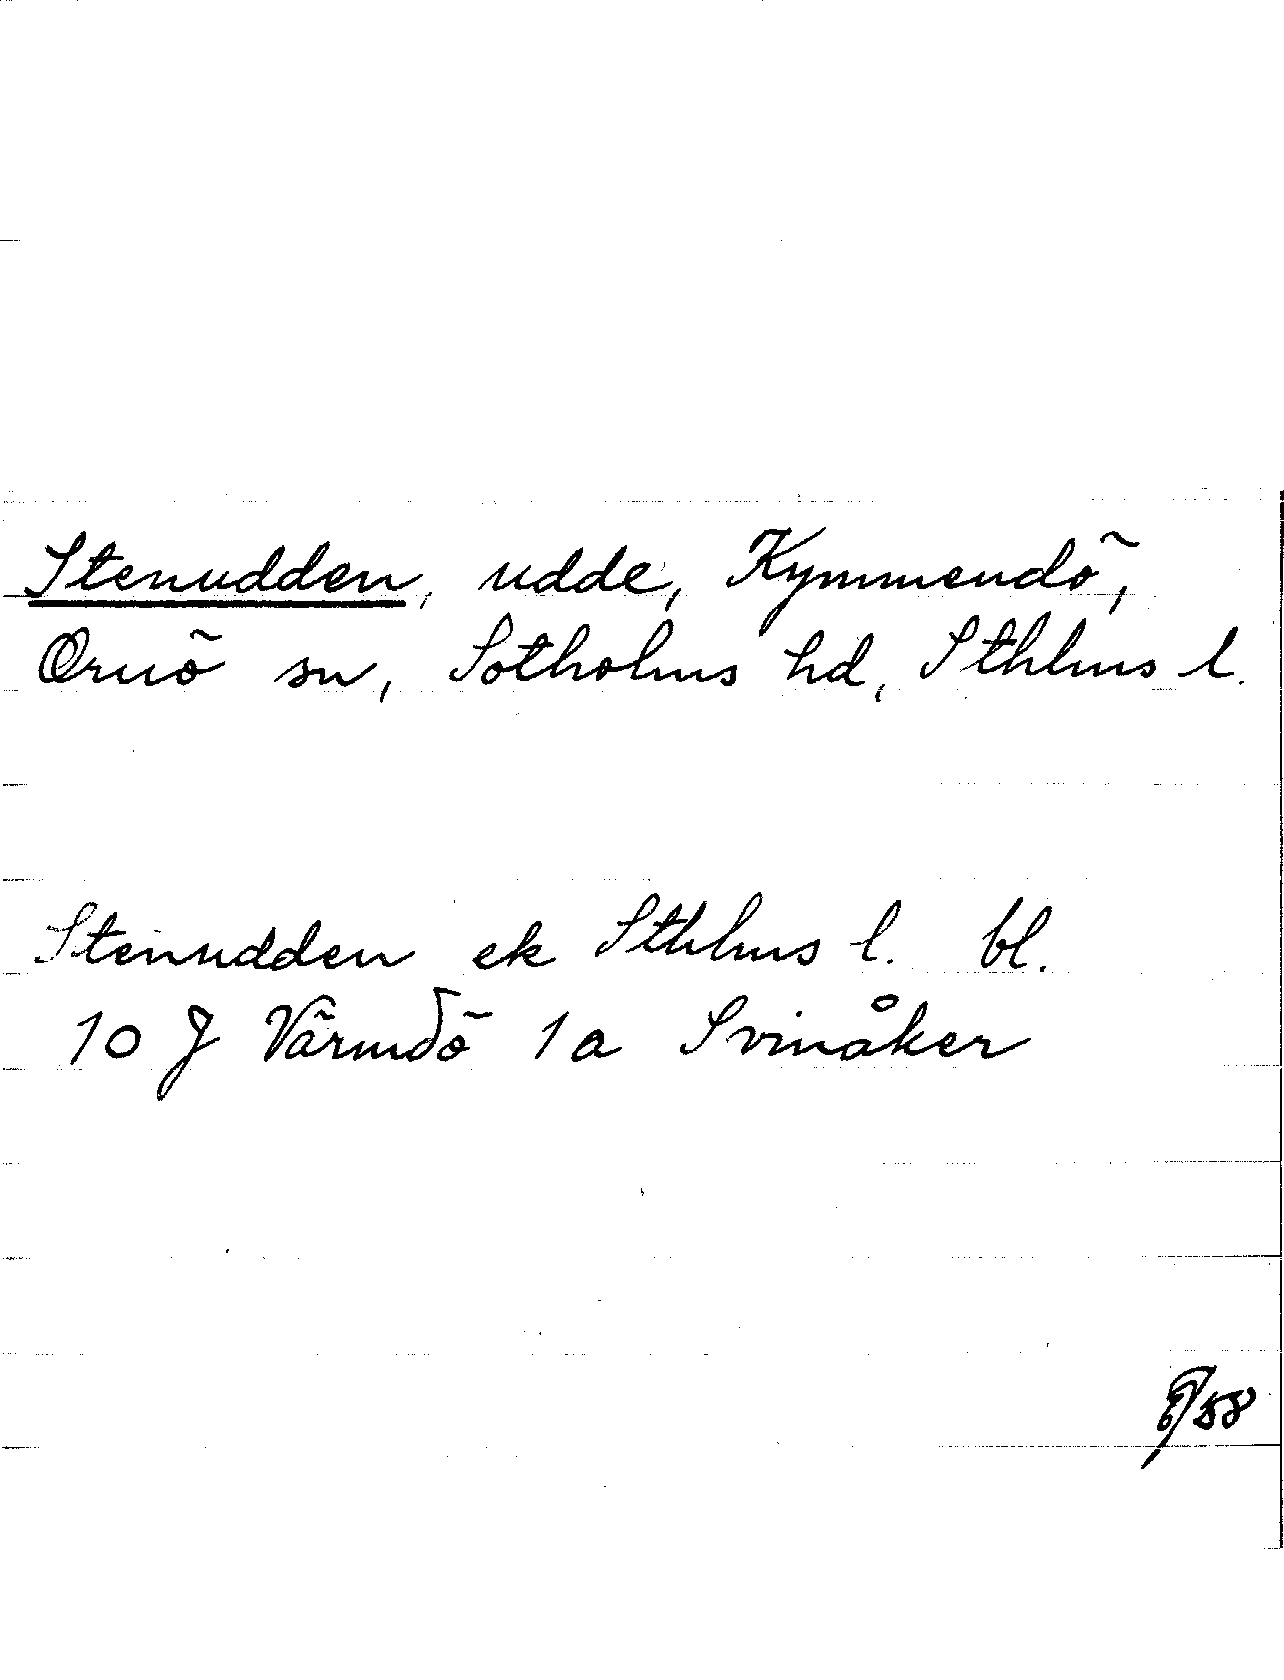 Stenudden, udde, Kymmendö,
Ornö sn, Sotholms hd, Sthlms l.
Stenudden ek Sthlms l. bl.
10 J Värmdö 1a Svinåker
/58